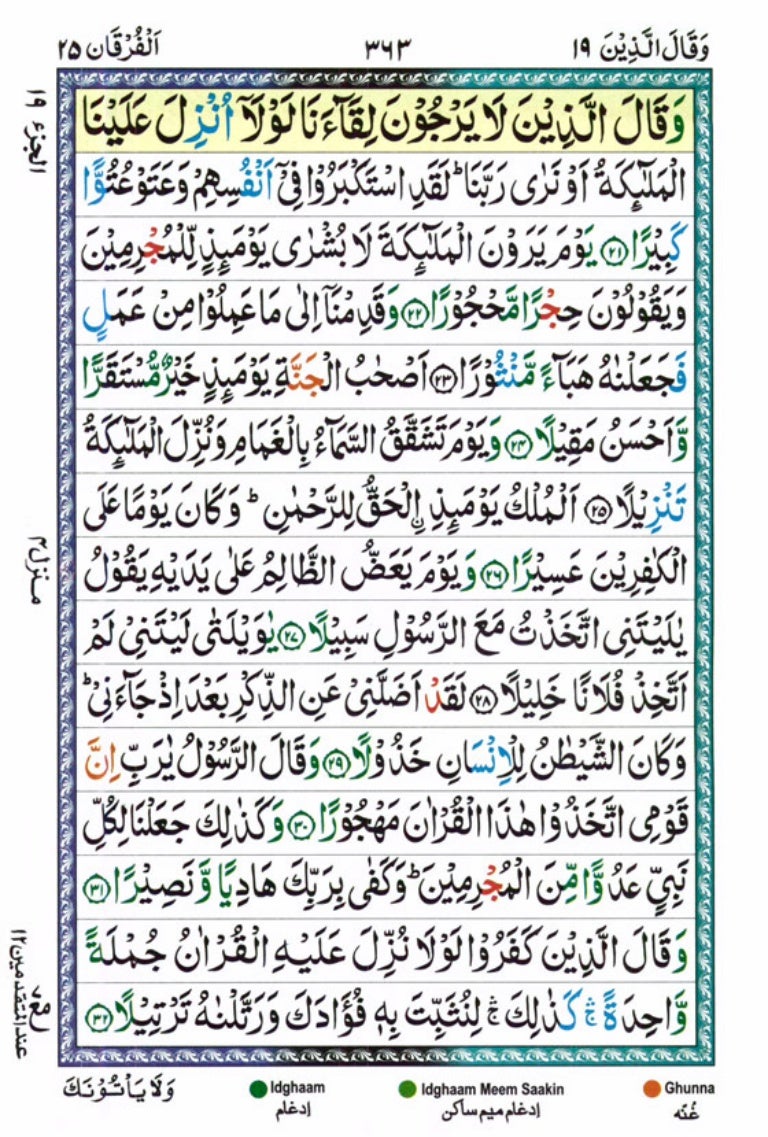 وَقَالَ الَّذِيْنَ ۱۹ ۳۶۳ اَلْفُرْقَان ۲۵
الجزء ۱۹
وَقَالَ الَّذِيْنَ لَا يَرْجُوْنَ لِقَآءَنَا لَوْلَاۤ اُنْزِلَ عَلَيْنَا
الْمَلٰٓئِكَةُ اَوْ نَرٰى رَبَّنَا ؕ لَقَدِ اسْتَكْبَرُوْا فِيْۤ اَنْفُسِهِمْ وَعَتَوْ عُتُوًّا
كَبِيْرًا ﴿۲۱﴾ يَوْمَ يَرَوْنَ الْمَلٰٓئِكَةَ لَا بُشْرٰى يَوْمَئِذٍ لِّلْمُجْرِمِيْنَ
وَيَقُوْلُوْنَ حِجْرًا مَّحْجُوْرًا ﴿۲۲﴾ وَقَدِمْنَاۤ اِلٰى مَا عَمِلُوْا مِنْ عَمَلٍ
فَجَعَلْنٰهُ هَبَآءً مَّنْثُوْرًا ﴿۲۳﴾ اَصْحٰبُ الْجَنَّةِ يَوْمَئِذٍ خَيْرٌ مُّسْتَقَرًّا
وَّاَحْسَنُ مَقِيْلًا ﴿۲۴﴾ وَيَوْمَ تَشَقَّقُ السَّمَآءُ بِالْغَمَامِ وَنُزِّلَ الْمَلٰٓئِكَةُ
تَنْزِيْلًا ﴿۲۵﴾ اَلْمُلْكُ يَوْمَئِذِ ِۨالْحَقُّ لِلرَّحْمٰنِ ؕ وَكَانَ يَوْمًا عَلَى
الْكٰفِرِيْنَ عَسِيْرًا ﴿۲۶﴾ وَيَوْمَ يَعَضُّ الظَّالِمُ عَلٰى يَدَيْهِ يَقُوْلُ
يٰلَيْتَنِى اتَّخَذْتُ مَعَ الرَّسُوْلِ سَبِيْلًا ﴿۲۷﴾ يٰوَيْلَتٰى لَيْتَنِيْ لَمْ
اَتَّخِذْ فُلَانًا خَلِيْلًا ﴿۲۸﴾ لَقَدْ اَضَلَّنِيْ عَنِ الذِّكْرِ بَعْدَ اِذْ جَآءَنِيْ ؕ
وَكَانَ الشَّيْطٰنُ لِلْاِنْسَانِ خَذُوْلًا ﴿۲۹﴾ وَقَالَ الرَّسُوْلُ يٰرَبِّ اِنَّ
قَوْمِى اتَّخَذُوْا هٰذَا الْقُرْاٰنَ مَهْجُوْرًا ﴿۳۰﴾ وَكَذٰلِكَ جَعَلْنَا لِكُلِّ
نَبِيٍّ عَدُوًّا مِّنَ الْمُجْرِمِيْنَ ؕ وَكَفٰى بِرَبِّكَ هَادِيًا وَّنَصِيْرًا ﴿۳۱﴾
وَقَالَ الَّذِيْنَ كَفَرُوْا لَوْلَا نُزِّلَ عَلَيْهِ الْقُرْاٰنُ جُمْلَةً
وَّاحِدَةً ۛۚ كَذٰلِكَ ۛۚ لِنُثَبِّتَ بِهٖ فُؤَادَكَ وَرَتَّلْنٰهُ تَرْتِيْلًا ﴿۳۲﴾
منزل ۴
مع ۹ عند المتقدمين ۱۲
وَلَا يَاْتُوْنَكَ
Idghaam
إدغام
Idghaam Meem Saakin
إدغام ميم ساكن
Ghunna
غُنّه